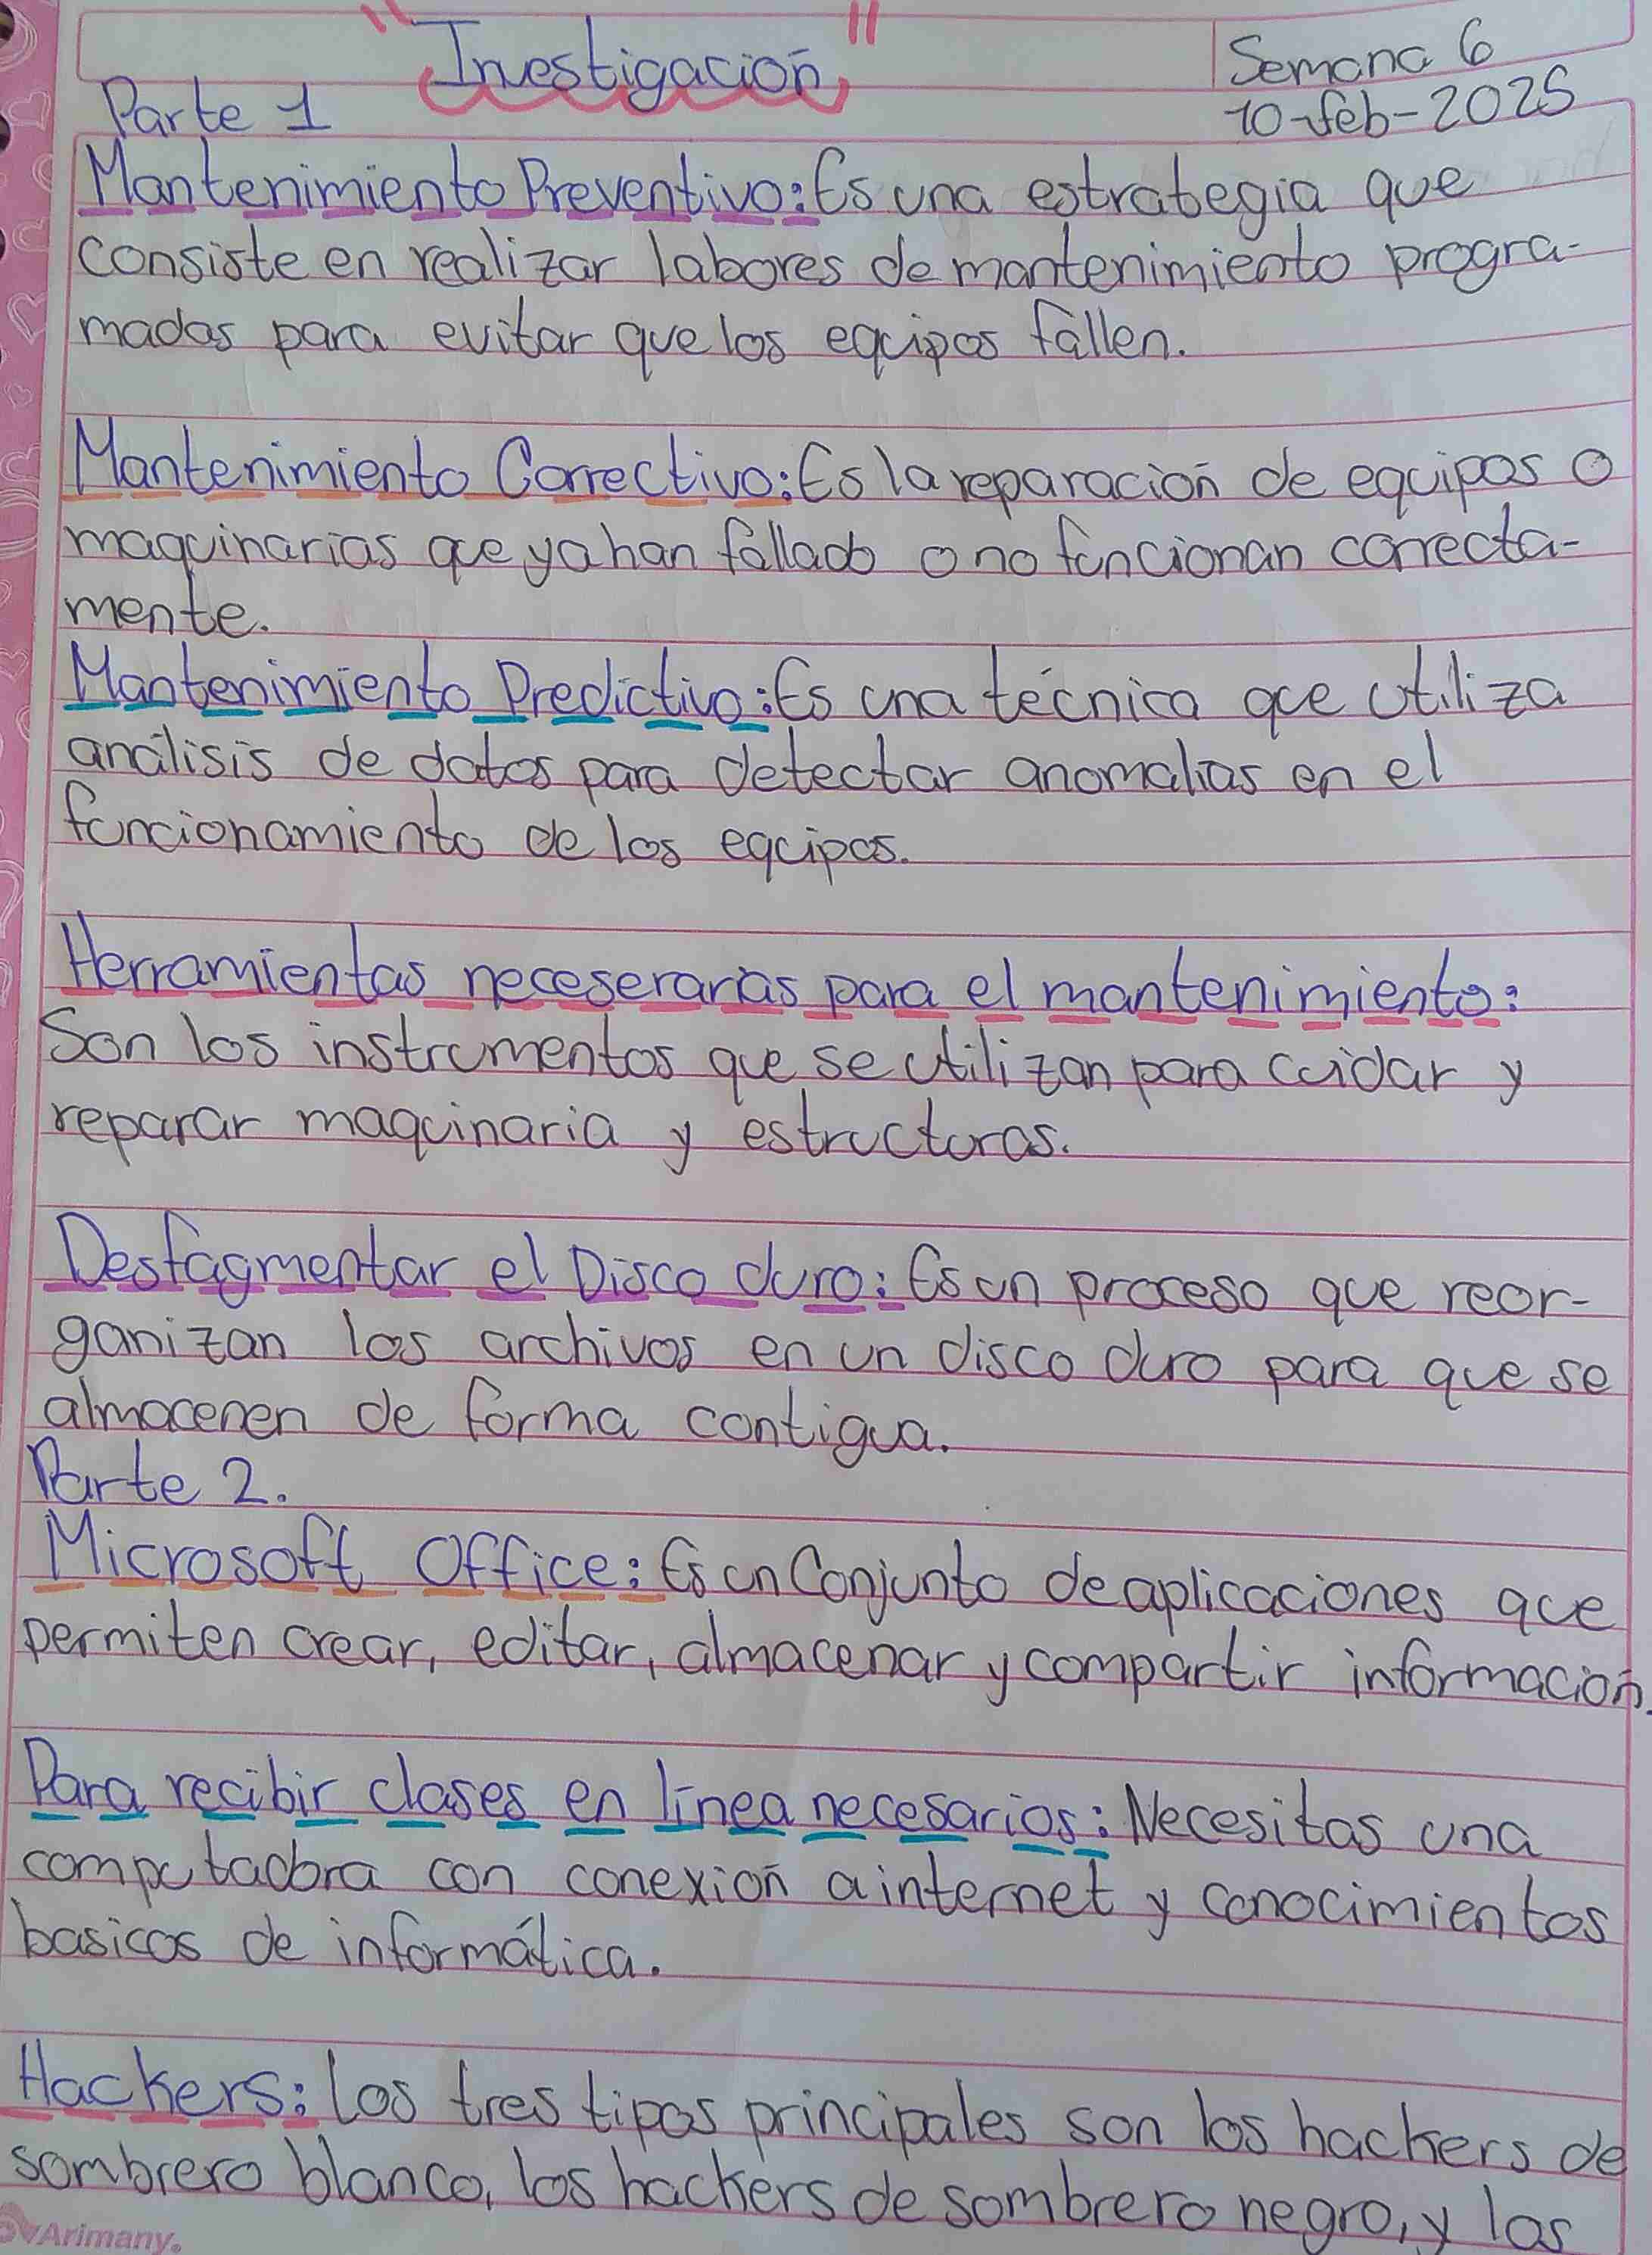 "Investigación"
Semana 6
Parte 1
10-feb-2025
Mantenimiento Preventivo: Es una estrategia que
consiste en realizar labores de mantenimiento progra-
madas para evitar que los equipos fallen.
Mantenimiento Correctivo: Es la reparación de equipos o
maquinarias que ya han fallado o no funcionan correcta-
mente.
Mantenimiento Predictivo: Es una técnica que utiliza
análisis de datos para detectar anomalías en el
funcionamiento de los equipos.
Herramientas neceserarias para el mantenimiento:
Son los instrumentos que se utilizan para cuidar y
reparar maquinaria y estructuras.
Desfagmentar el Disco duro: Es un proceso que reor-
ganizan los archivos en un disco duro para que se
almacenen de forma contigua.
Parte 2.
Microsoft Office: Es un Conjunto de aplicaciones que
permiten crear, editar, almacenar y compartir información.
Para recibir clases en línea necesarios: Necesitas una
computadora con conexión a internet y conocimientos
basicos de informática.
Hackers: Los tres tipos principales son los hackers de
sombrero blanco, los hackers de sombrero negro, y los
Arimany.